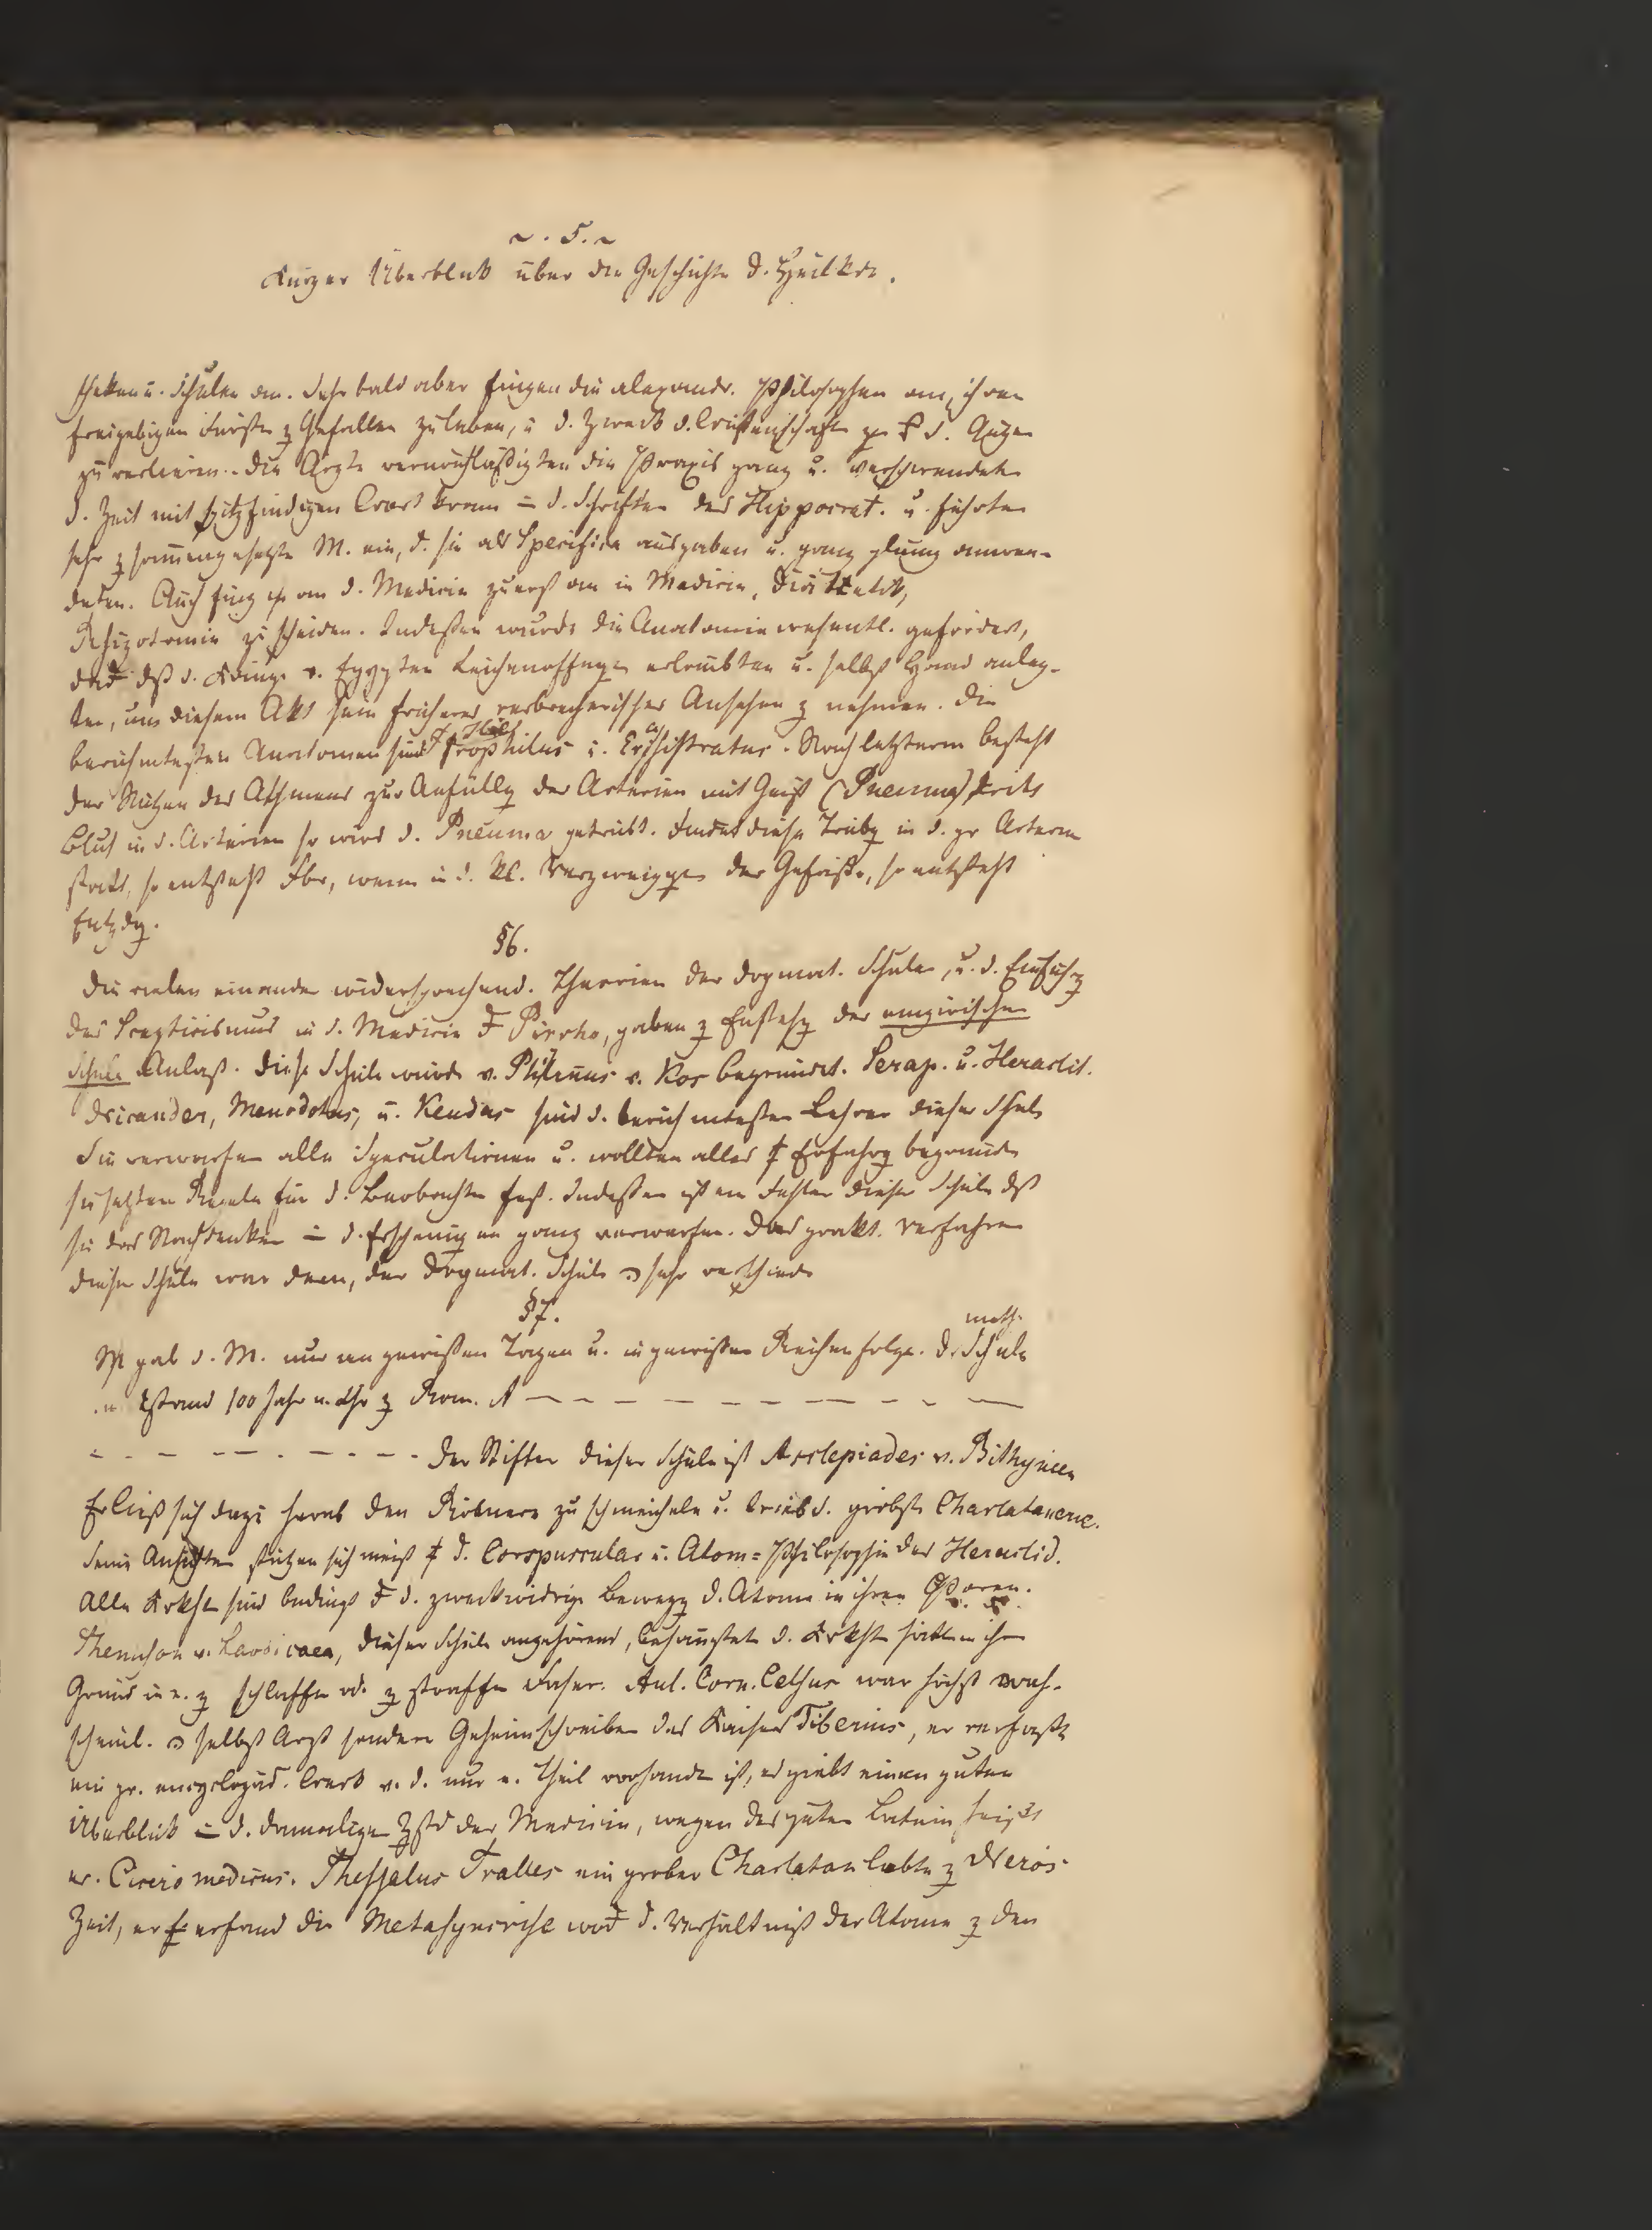 ~ . 5. ~
Kurzer Überblick über die Geschichte d. Heilkde.
theken u. Schulen an. Sehr bald aber fingen die alexandr. Philosophen an, ihren
freigebigen Fürsten z Gefallen zu leben, u d. Zweck d. Wissenschaft d. Augen
zu verlieren. Die Ärzte vernachläßigten die Praxis ganz u. verschwendeten
d. Zeit mit spitzfindigen Wortkram d. Schriften des Hippocrat. u. führten
sehr zsammengesetzte M. ein, d. sie als Specifica ausgaben u. ganz anwen-
deten. Auch fing an d. Medicin zuerst an in Medicin, Diätetik,
Rhizotomie zu scheiden. Indeßen wurde die Anatomie wesentl. gefördert,
dß d. Könige v. Egypten Leichenöffngen erlaubten u. selbst Hand anleg-
ten, um diesem Akt sein früheres verbrecherisches Ansehen z nehmen. Die
berühmtesten Anatomen sind Hierophilus u. Erasistratus. Nach letzterem besteht
der Nutzen des Athmens zur Anfüllg der Arterien mit Geist (Pneuma) tritt
Blut in d. Arterien so wird d. Pneuma getrübt. Findet diese Trübg in d. gr Arterien
statt, so entsteht Fbr, wenn in d. kl. Verzweiggen der Gefäße, so entsteht
Entzdg.
§6.
Die vielen einander widersprechend. Theorien der dogmat. Schule, u. d. Einführg
des Scepticismus in d. Medicin Pirrho, gaben z Entstehg der empirischen
Schule Anlaß. Diese Schule wurde v. Philinus v. Kos begründet. Serap. u. Heraclit.
Nicander, Menodotus, u. Keudas sind d. berühmtesten Lehrer dieser Schule
Sie verwarfen alle Speculationen u. wollten alles Erfahrg begründe
sie setzten Regeln für d. Beobachten fest. Indeßen ist ein Fehler dieser Schule dß
sie das Nachdenken d. Erscheinungen ganz verwarfen. Das prakt. Verfahren
dieser Schule war dem, der Dogmat. Schule sehr verschieden
§7.
M gab d. M. nur an gewißen Tagen u. in gewißer Reihenfolge. D. meth. Schule
entstand 100 Jahr n. Chr z Rom. A – – – – – – – – – –
- - - - - - - - - - Der Stifter dieser Schule ist Asclepiades v. Bithynien
Er ließ sich dazu herab den Römern zu schmeicheln u. trieb d. gröbste Charlatanerie.
Seine Ansichten stützen sich meist d. Corpuscular u. Atom=Philosophie des Heraclid.
Alle Krkht sind bedingt d. zweckwidrige Bewegg d. Atome in ihren Poren.
Themison v. Laodicaea, dieser Schule angehörend, behauptete d. Krkht hätten ihren
Grund in e. z schlaffen od. z straffen Faser. Aul. Corn. Celsus war höchst wahr-
scheinl. selbst Arzt sondern Geheimschreiber des Kaisers Tiberius, er verfaßte
ein gr. encyclopäd. Werk v. d. nur e. Theil vorhanden ist, es giebt einen guten
Überblick d. damaligen Zstd der Medicin, wegen des guten Latein heißt
er Cicero medicus. Thessalus Tralles ein grober Charlatan lebte z Neros
Zeit, er erfand die Metasyncrise d. Verhältniß der Atome z den